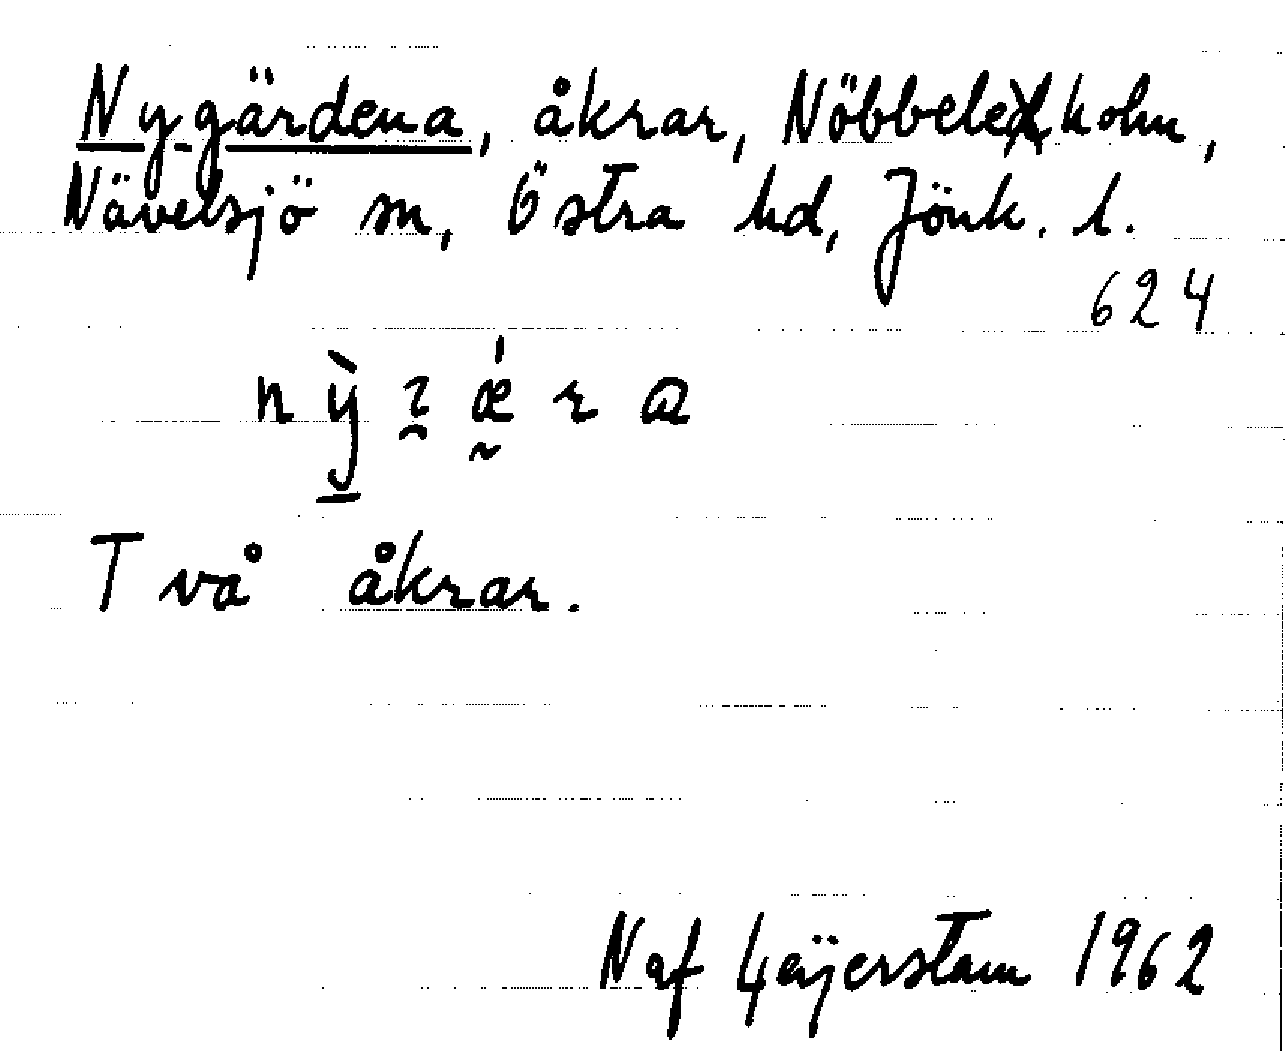 Nygärdena, åkrar, Nöbbele kolm,
Nävelsjö sn, Östra hd, Jönk. l.
624
Två åkrar.
N af Geijerstam 1962